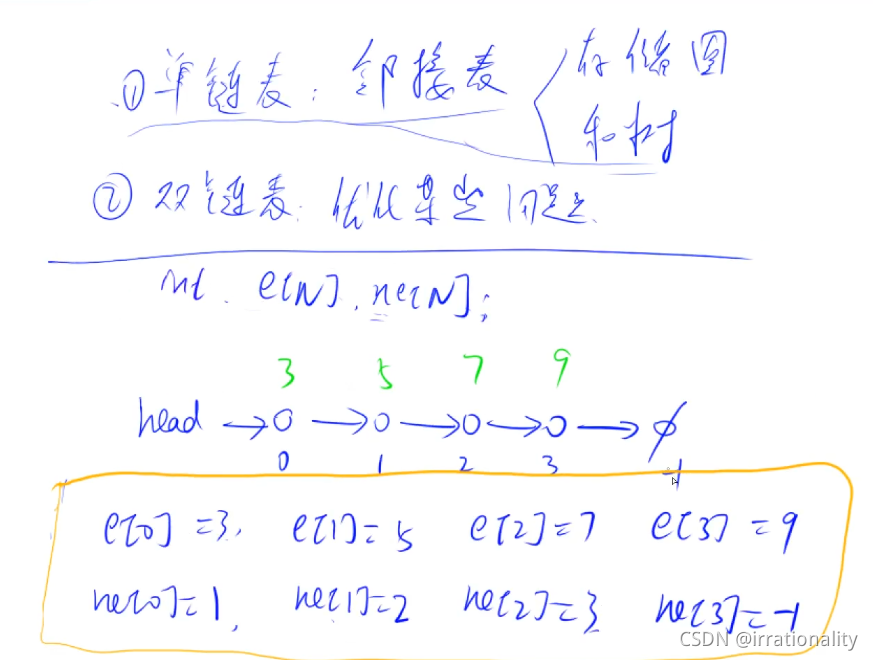 ① 单链表: 邻接表 存储图
和树
② 双链表: 优化某些问题
int e[N], ne[N];
3 5 7 9
head → O → O → O → O → ∅
0 1 2 3 -1
e[0]=3, e[1]=5 e[2]=7 e[3]=9
ne[0]=1, ne[1]=2 ne[2]=3 ne[3]=-1
CSDN @irrationality